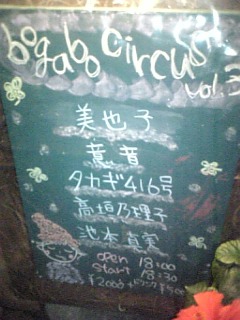 bogabo circus!
vol.3
美也子
薫音
タカギ416号
高垣乃理子
池本真実
open 18:00
start 18:30
¥2000+ドリンク¥500